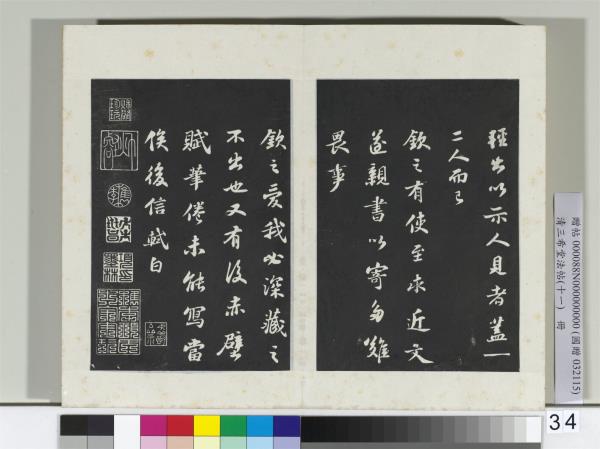 輕出以示人見者蓋一
二人而已
欽之有使至求近文
遂親書以寄多難
畏事
欽之愛我必深藏之
不出也又有後赤壁
賦筆倦未能寫當
俟後信軾白
贈帖 000088N000000000 (國贈 032115)
清三希堂法帖(十一) 冊
34